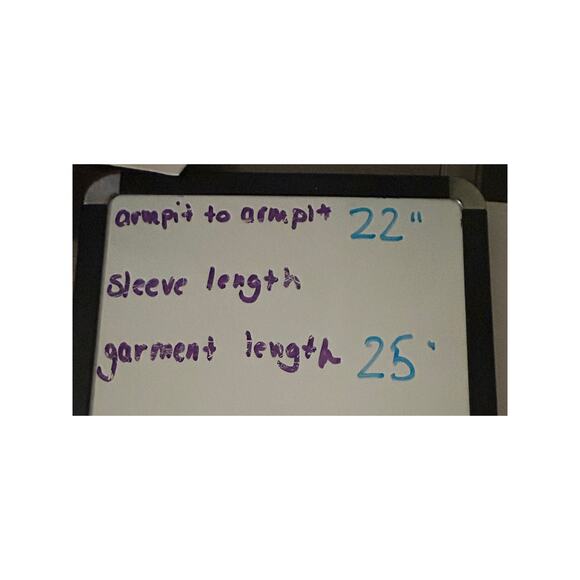 armpit to armpit 22"
sleeve length
garment length 25'